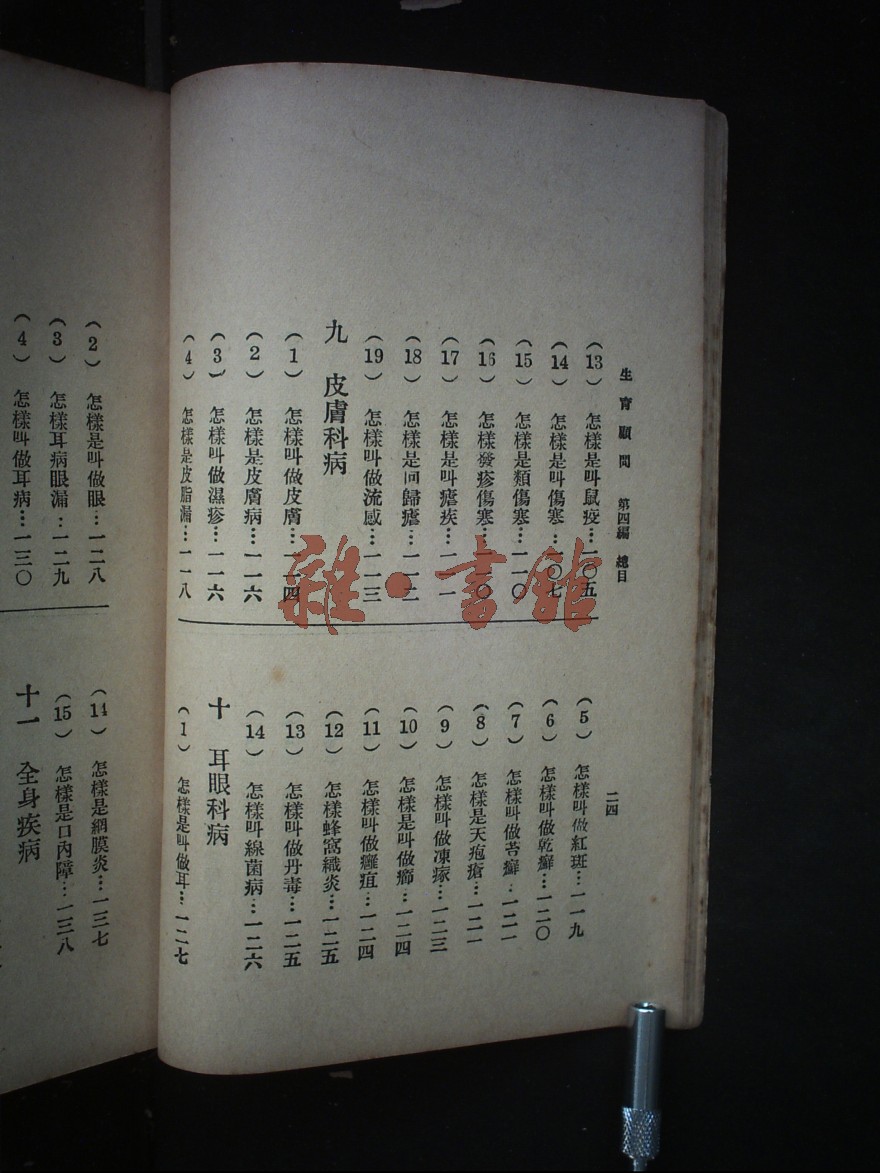 生育顧問 第四編 總目
二四
(13) 怎樣是叫鼠疫…一〇五
(14) 怎樣是叫傷寒…一〇七
(15) 怎樣是類傷寒…一一〇
(16) 怎樣發疹傷寒…一一〇
(17) 怎樣是叫瘧疾…一一一
(18) 怎樣是回歸瘧…一一二
(19) 怎樣叫做流感…一一三
九 皮膚科病
(1) 怎樣叫做皮膚…一一四
(2) 怎樣是皮膚病…一一六
(3) 怎樣叫做濕疹…一一六
(4) 怎樣是皮脂漏…一一八
(5) 怎樣叫做紅斑…一一九
(6) 怎樣叫做乾癬…一二〇
(7) 怎樣叫做苔癬…一二一
(8) 怎樣是天疱瘡…一二一
(9) 怎樣叫做凍瘃…一二三
(10) 怎樣是叫做癤…一二四
(11) 怎樣叫做癰疽…一二四
(12) 怎樣蜂窩織炎…一二五
(13) 怎樣叫做丹毒…一二五
(14) 怎樣叫線菌病…一二六
十 耳眼科病
(1) 怎樣是叫做耳…一二七
(2) 怎樣是叫做眼…一二八
(3) 怎樣耳病眼漏…一二九
(4) 怎樣叫做耳病…一三〇
(14) 怎樣是網膜炎…一三七
(15) 怎樣是口內障…一三八
十一 全身疾病
雜·書館